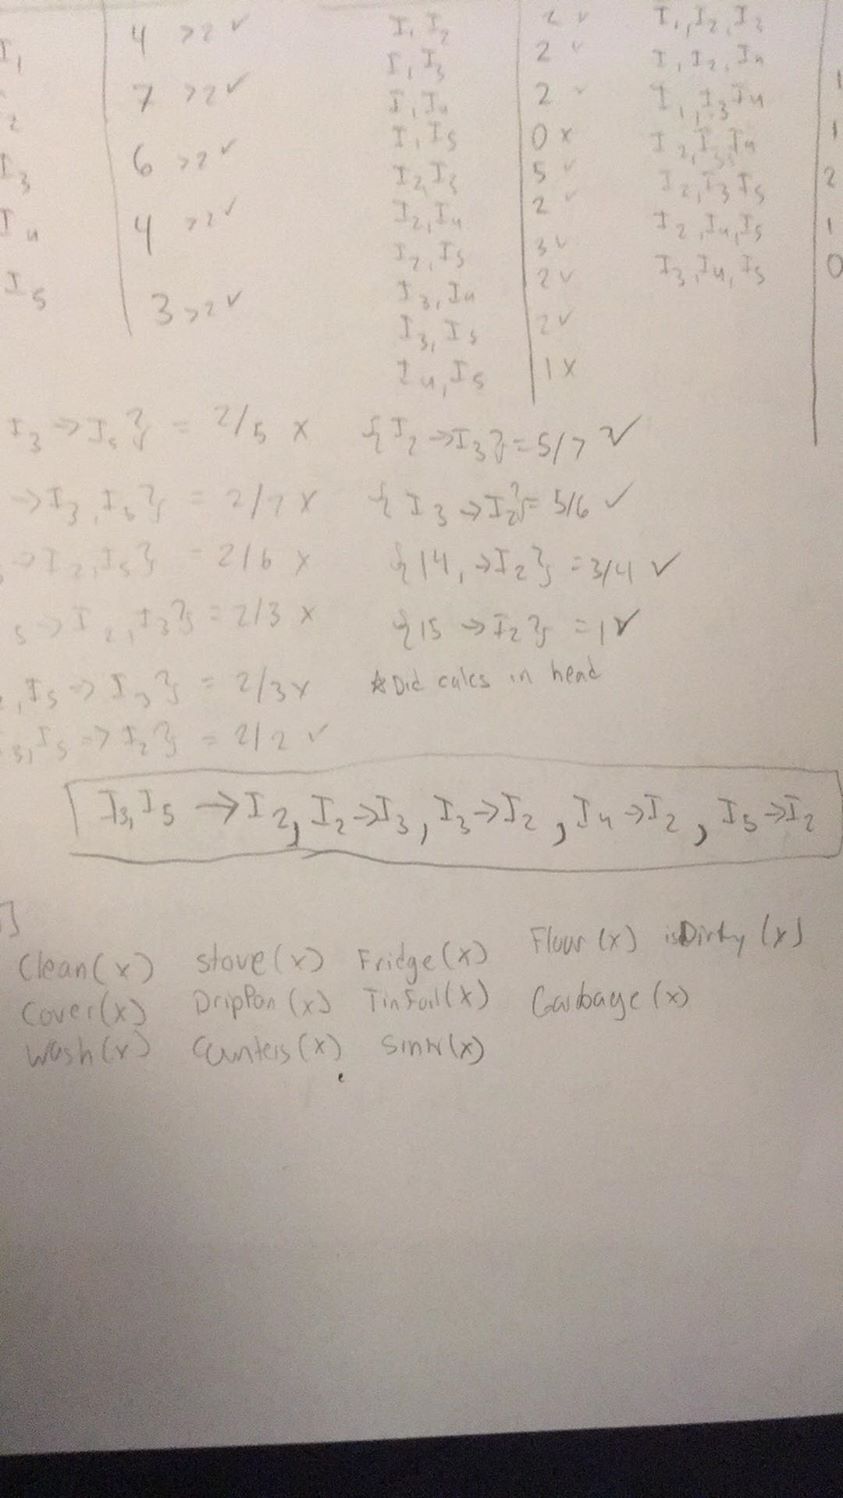 I1 | 4 >2 ✓
2 | 7 >2 ✓
I3 | 6 >2 ✓
I4 | 4 >2 ✓
I5 | 3 >2 ✓
I1 I2 | 2 ✓
I1 I3 | 2 ✓
I1 I4 | 2 ✓
I1 I5 | 0 x
I2 I3 | 5 ✓
I2, I4 | 2 ✓
I2, I5 | 3 ✓
I3, I4 | 2 ✓
I3, I5 | 2 ✓
I4, I5 | 1 x
I1, I2, I3
I1, I2, I4 | 1
I1, I3 I4 | 1
I2, I3, I4
I2, I3 I5 | 2
I2, I4, I5 | 1
I3, I4, I5 | 0
I3 → I5} = 2/5 x
→ I3, I5} = 2/7 x
→ I2, I5} = 2/6 x
5 → I2, I3} = 2/3 x
2, I5 → I3} = 2/3 x
3, I5 → I2} = 2/2 ✓
{I2 → I3} = 5/7 ✓
{I3 → I2} = 5/6 ✓
{I4, → I2} = 3/4 ✓
{I5 → I2} = 1 ✓
*Did calcs in head
I3, I5 → I2, I2 → I3, I3 → I2, I4 → I2, I5 → I2
Clean(x) stove(x) Fridge(x) Floor(x) isDirty(x)
Cover(x) DripPan(x) TinFoil(x) Garbage(x)
Wash(x) Counters(x), Sink(x)